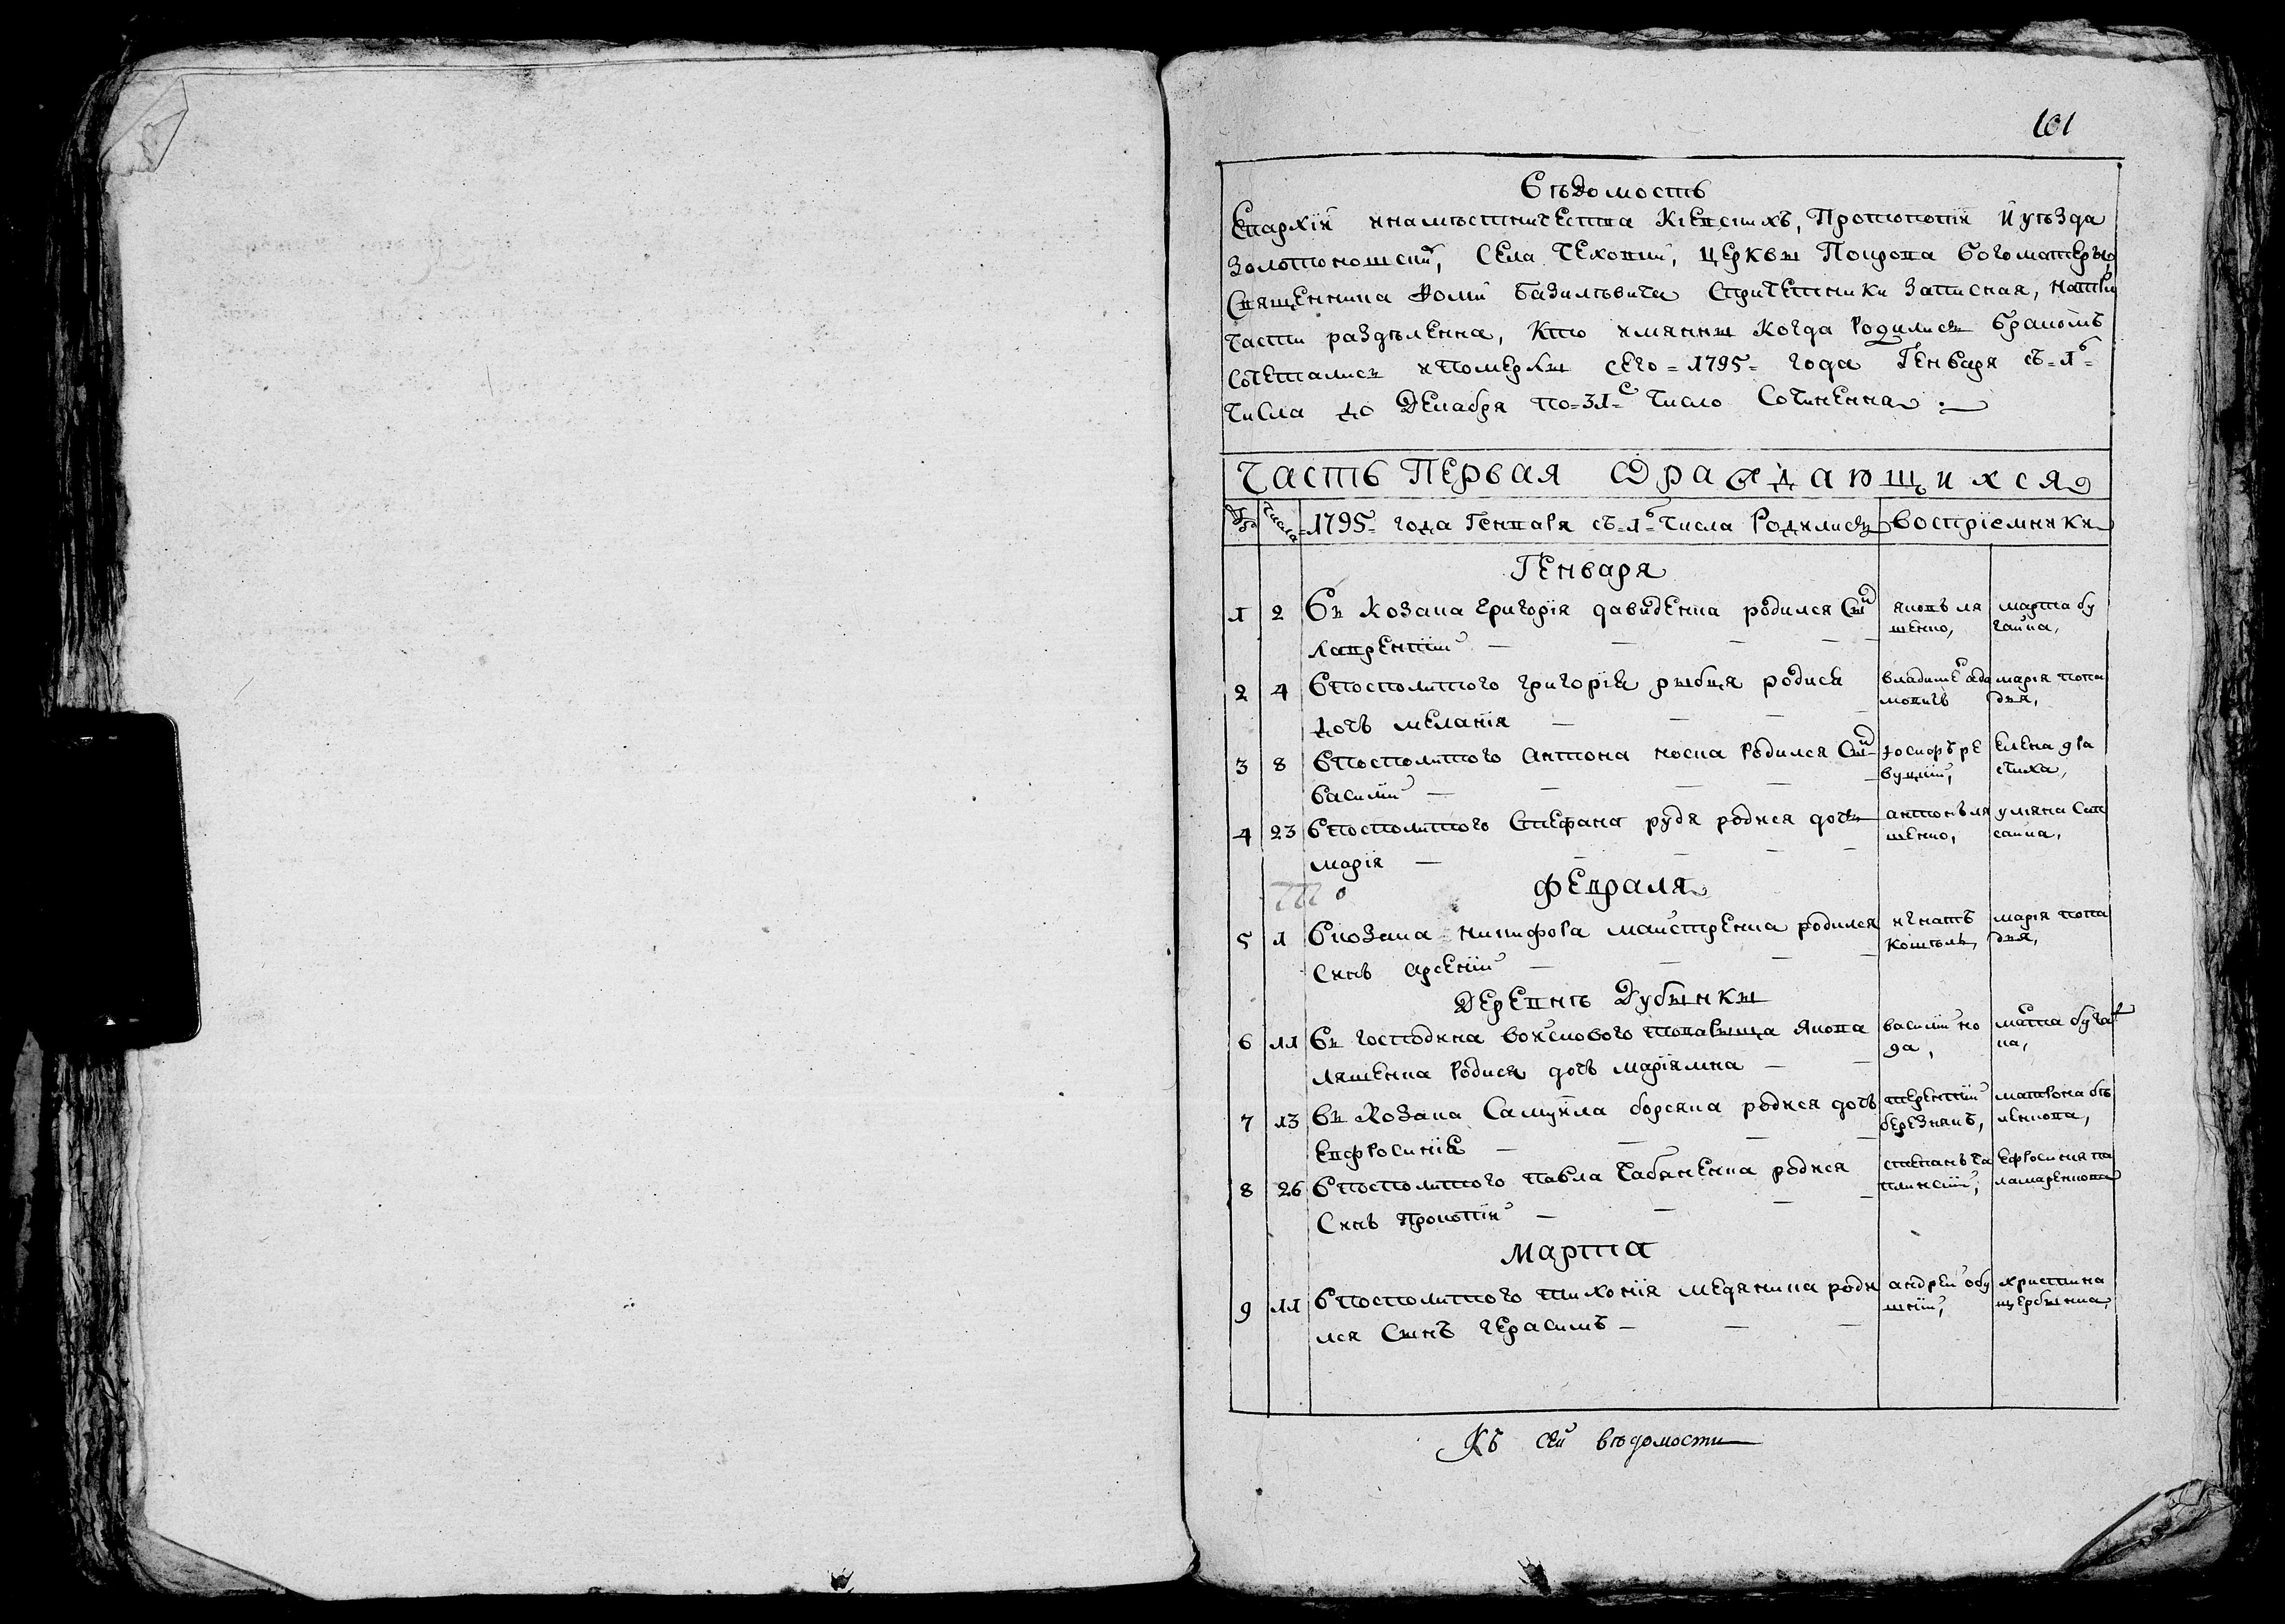 101
Вѣдомость
Епархіи инамѣстничества Кіевскихъ, Протопопіи и уѣзда
Золотоношский, Села Чеховки, церквы Покрова богоматеры,
Священника Фоми базилѣвича Спричетники записная, натри
части раздѣленна, Кто имянны когда Родились бракомъ
Сочетались ипомерлы сего = 1795 = года Генваря съ = 1 ь =
числа до Декабря по = 31 = е число Сочиненна
Часть Первая О раждающихся
числа
1795 = года Генваря съ = 1 ь = числа Родились
воспріемники
Генваря
1 2 Въ козака григорія давиденка родился Сынъ
Лаврентій
яковъ ля
шенко,
марта бу
гаика,
2 4 Впосполитого григорія рыбця родися
дочь меланія
владимеръ ада
мовичъ
марія попа
дия,
3 8 Впосполитого Антона носка Родился Сынъ
василій
іосифъ ре
вуцкій,
елена
4 23 Впосполитого Стефана рудя родися дочь
марія
антонъ ля
шенко,
уляна
Февраля
5 1 Вкозака никифора маистренка родился
Синъ арсеній
игнатъ
кошѣль,
марія попа
дия,
Деревнѣ Дубынкы
6 11 Въ господина воискового товарыща Якова
ляшенка Родися дочь маріямна
василій ко
да,
марта бугаи
ка,
7 13 Въ Козака Самуила борсяка родися дочь
Евфросинія
терентій
березнякъ,
матрона бѣ
ленкова,
8 26 Впосполитого павла чабаненка родися
Синъ Прокопій
степанъ ча
плинскій,
ефросиния па
ламаренкова
Марта
9 11 Впосполитого тихонія медяника роди
лся Сынъ герасимъ
андрей
христина
щербынка,
Къ сей вѣдомости